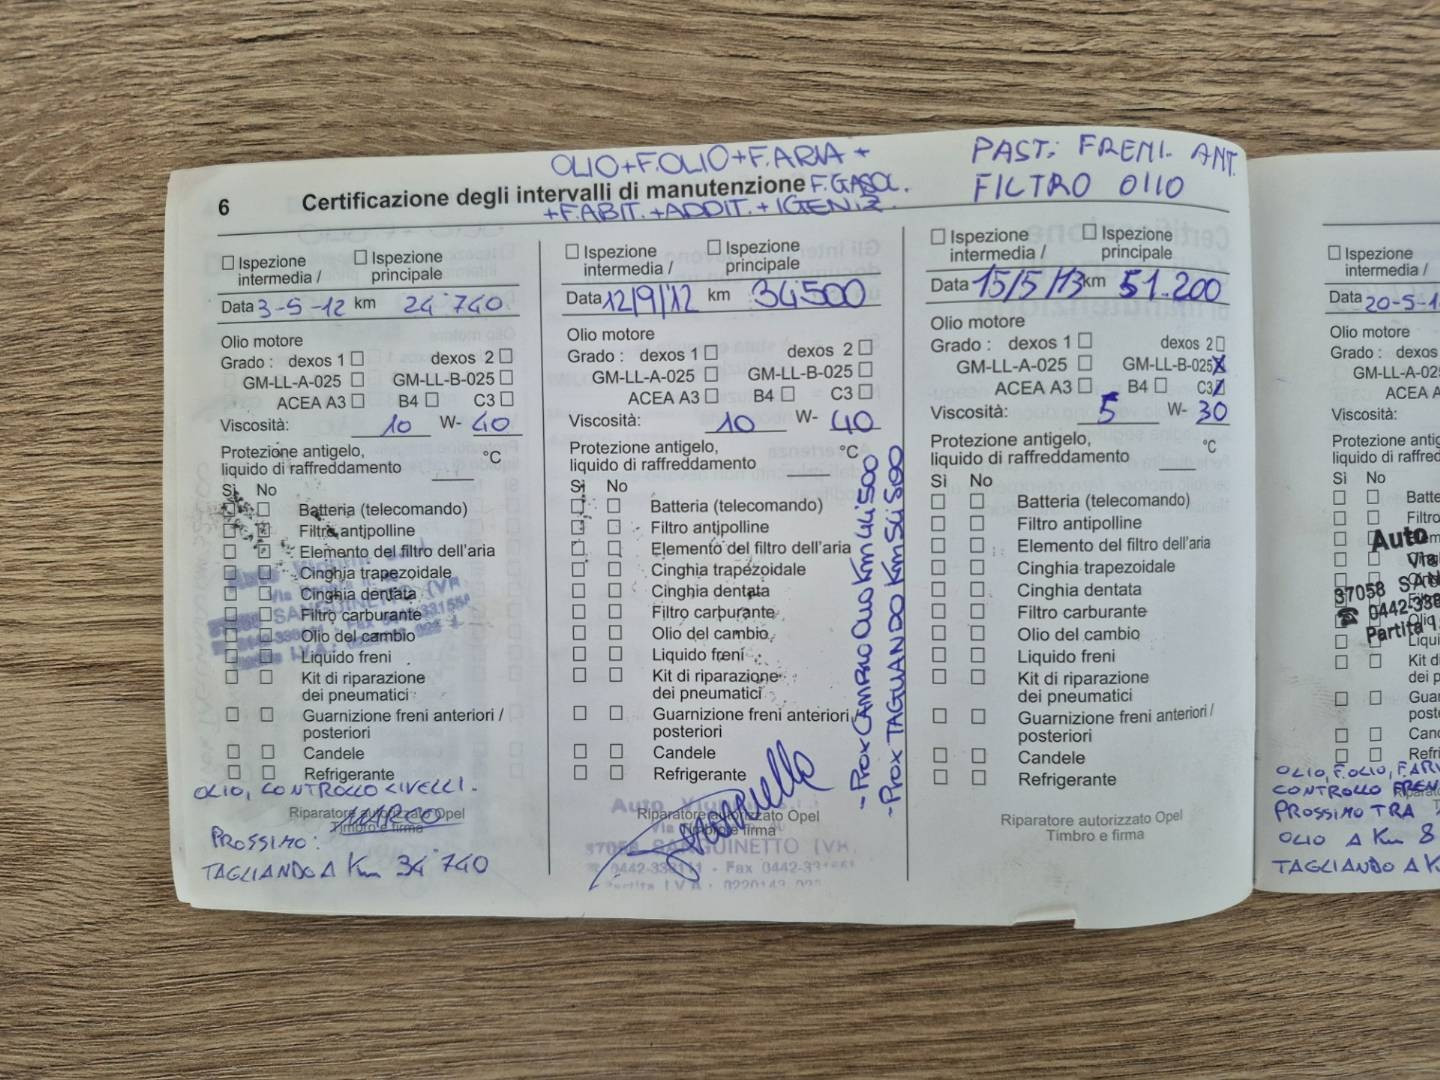 OLIO+F.OLIO+F.ARIA +
6 Certificazione degli intervalli di manutenzione F.GASOL.
+F.ABIT.+ADDIT.+IGENIZ.
PAST. FRENI. ANT.
FILTRO OLIO
Ispezione intermedia /
Ispezione principale
Data 3-5-12 km 24'740.
Olio motore
Grado : dexos 1 dexos 2
GM-LL-A-025 GM-LL-B-025
ACEA A3 B4 C3
Viscosità: 10 W- 40
Protezione antigelo, °C
liquido di raffreddamento
Sì No
Batteria (telecomando)
Filtro antipolline
Elemento del filtro dell'aria
Cinghia trapezoidale
Cinghia dentata
Filtro carburante
Olio del cambio
Liquido freni
Kit di riparazione
dei pneumatici
Guarnizione freni anteriori /
posteriori
Candele
Refrigerante
OLIO, CONTROLLO LIVELLI.
Riparatore autorizzato Opel
MARCO
Timbro e firma
PROSSIMO:
TAGLIANDO A Km 34'740
Ispezione intermedia /
Ispezione principale
Data 12/9/12 km 34500
Olio motore
Grado : dexos 1 dexos 2
GM-LL-A-025 GM-LL-B-025
ACEA A3 B4 C3
Viscosità: 10 W- 40
Protezione antigelo, °C
liquido di raffreddamento
Sì No
Batteria (telecomando)
Filtro antipolline
Elemento del filtro dell'aria
Cinghia trapezoidale
Cinghia dentata
Filtro carburante
Olio del cambio
Liquido freni
Kit di riparazione
dei pneumatici
Guarnizione freni anteriori /
posteriori
Candele
Refrigerante
Riparatore autorizzato Opel
Timbro e firma
37058 SANGUINETTO (VR
- Fax 0442-331
- Prox CAMBIO OLIO Km 44500
- Prox TAGLIANDO Km 54500
Ispezione intermedia /
Ispezione principale
Data 15/5/13 km 51.200
Olio motore
Grado : dexos 1 dexos 2
GM-LL-A-025 GM-LL-B-025 X
ACEA A3 B4 C3
Viscosità: 5 W- 30
Protezione antigelo, °C
liquido di raffreddamento
Sì No
Batteria (telecomando)
Filtro antipolline
Elemento del filtro dell'aria
Cinghia trapezoidale
Cinghia dentata
Filtro carburante
Olio del cambio
Liquido freni
Kit di riparazione
dei pneumatici
Guarnizione freni anteriori /
posteriori
Candele
Refrigerante
Riparatore autorizzato Opel
Timbro e firma
Ispezione
intermedia /
Data 20-5-1
Olio motore
Grado : dexos
GM-LL-A-025
ACEA A
Viscosità:
Protezione antig
liquido di raffred
Sì No
Batte
Filtro
Auto
Via
37058 SAN
0442-338
Partita
Liqui
Kit di
dei p
Guar
poste
Cand
Refri
OLIO, F.OLIO, F.ARI
CONTROLLO FREN
PROSSIMO TRA
OLIO A Km 8
TAGLIANDO A K